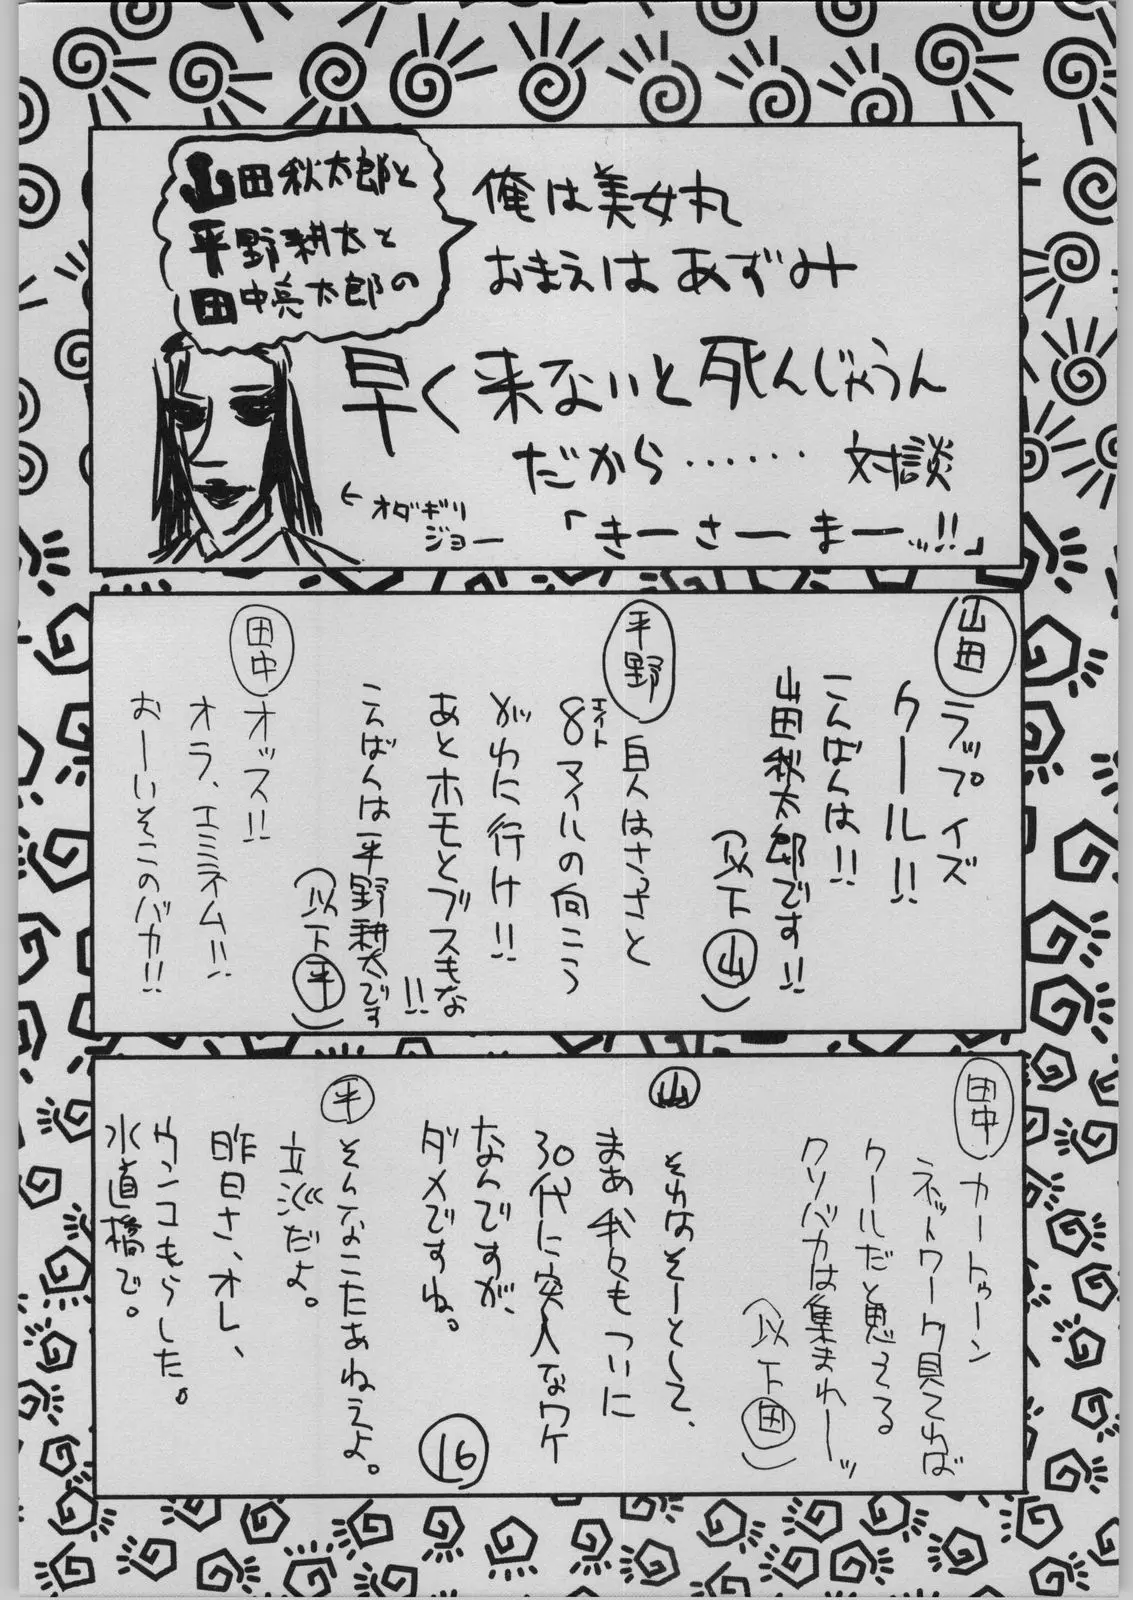 山田秋太郎と
平野耕太と
田中亮太郎の
俺は美女丸
おまえはあずみ
早く来ないと死んじゃうん
だから……対談
「きーさーまーッ!!」
オダギリ
ジョー
山田
ラップイズ
クール!!
こんばんは!!
山田秋太郎です!!
(以下山)
平野
白人はさっさと
8マイルの向こう
エイト
がわに行け!!
あとホモとブスもな!!
こんばんは平野耕太です
(以下平)
田中
オッス!!
オラ、エミネム!!
おーいそこのバカ!!
田中
カートゥーン
ネットワーク見てれば
クールだと思えてる
クソバカは集まれーッ
(以下田)
山
それはそーとして、
まあ我々もついに
30代に突入なワケ
なんですが、
ダメですね。
平
そんなこたあねえよ。
立派だよ。
昨日さ、オレ、
ウンコもらした。
水道橋で。
16